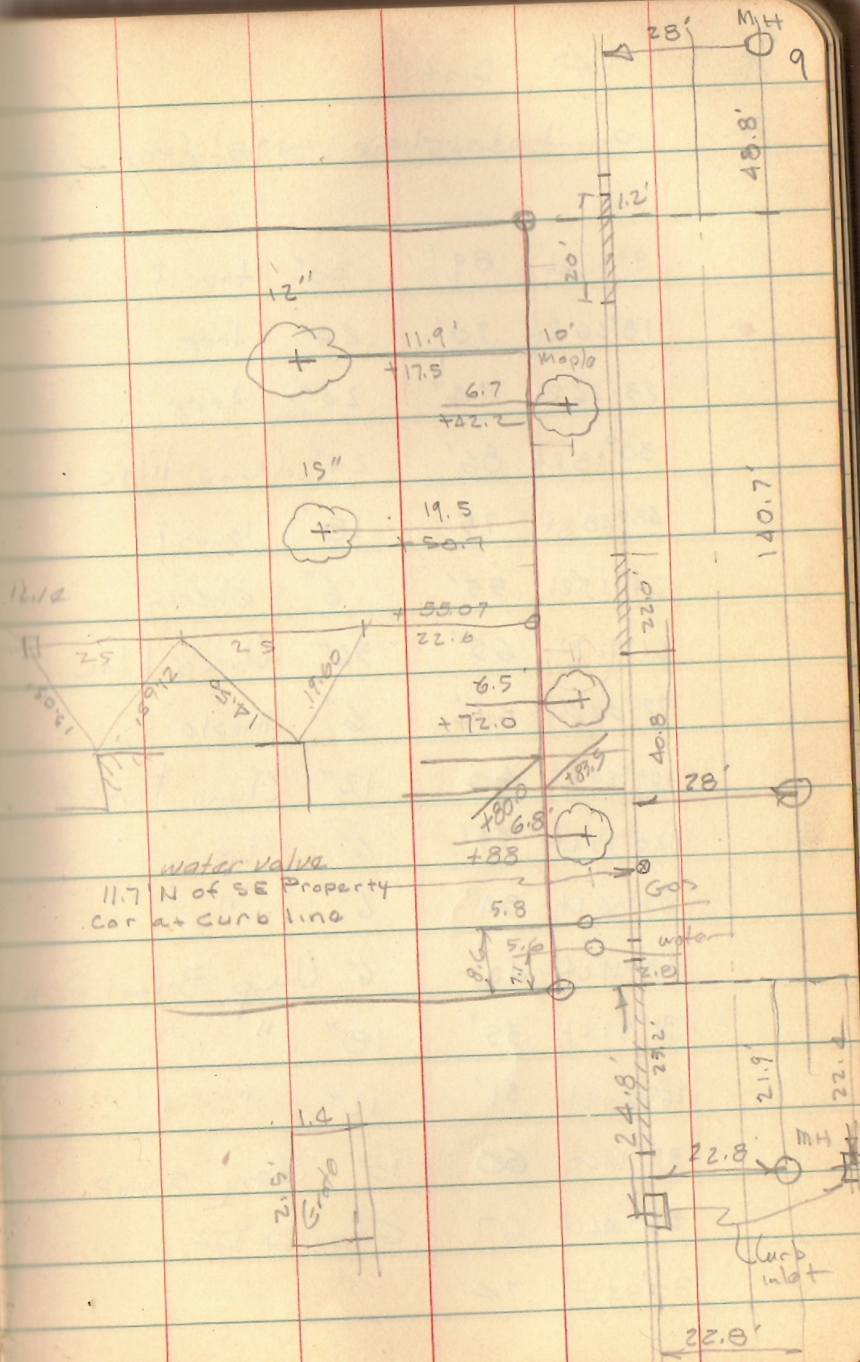 9
MH
28'
48.8'
1.2'
20'
12"
11.9'
+17.5
10'
maple
6.7
+42.2
15"
19.5
+50.7
140.7'
22.0'
+55.07
22.6
25
25
14.50
19.60
6.5'
+72.0
40.8
+83.5
+80.0
28'
6.8'
+88
water valve
11.7' N of SE Property
Cor at Curb line
Gas
5.8
water
5.6
8.6
7.1
2.0
24.8'
25.2'
21.9'
22.4
1.4
2.5'
Grate
22.8'
Curb
inlet
22.8'